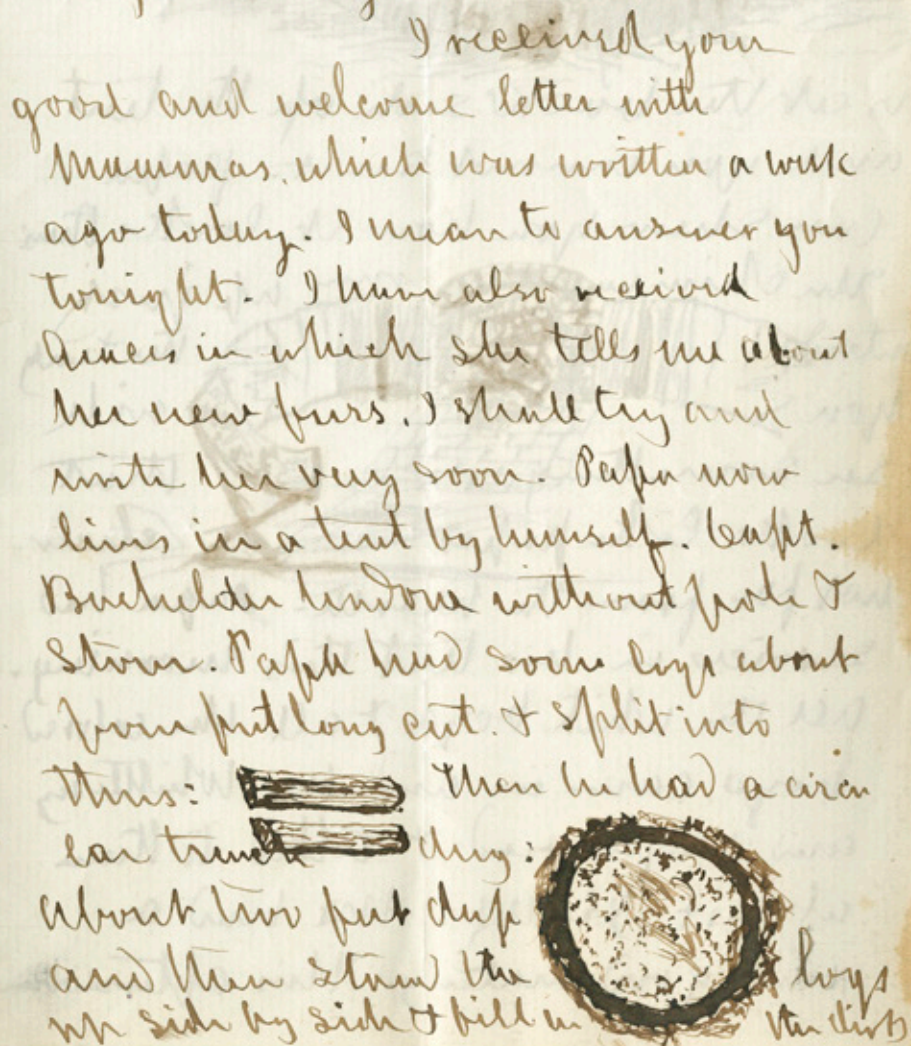 I received your
good and welcome letter with
Mammas, which was written a week
ago today. I mean to answer you
tonight. I have also received
in which she tells me about
her new furs. I shall try and
write her very soon. Papa now
lives in a tent by himself. Capt.
Bachelder without pole &
Stove. Papa had some logs about
four feet long cut. & split into
thus: then he had a circu
lar trench dug:
about two feet deep
and then stood the logs
up side by side & fill in the dirt